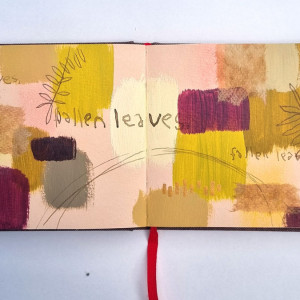 fallen leaves
fallen leaves